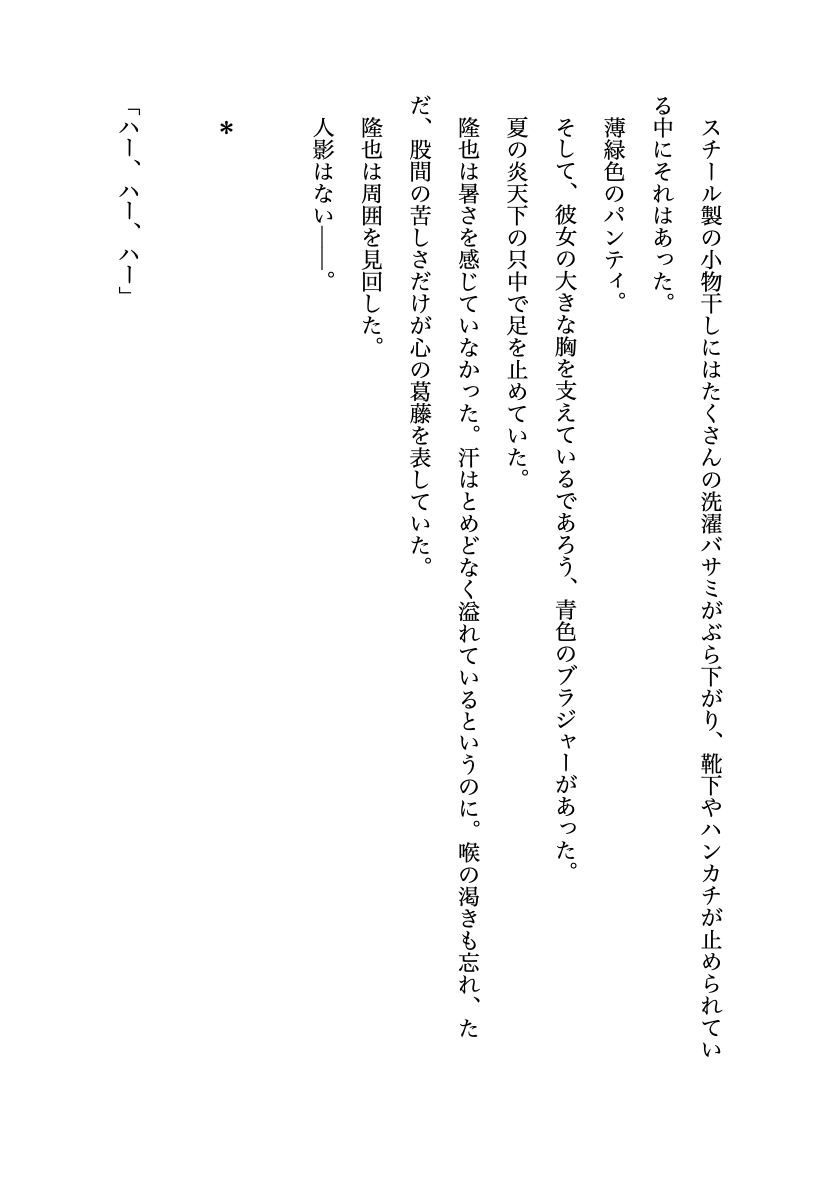 スチール製の小物干しにはたくさんの洗濯バサミがぶら下がり、靴下やハンカチが止められてい
る中にそれはあった。
　薄緑色のパンティ。
　そして、彼女の大きな胸を支えているであろう、青色のブラジャーがあった。
　夏の炎天下の只中で足を止めていた。
　隆也は暑さを感じていなかった。汗はとめどなく溢れているというのに。喉の渇きも忘れ、た
だ、股間の苦しさだけが心の葛藤を表していた。
　隆也は周囲を見回した。
　人影はない――。
　＊
「ハー、ハー、ハー」